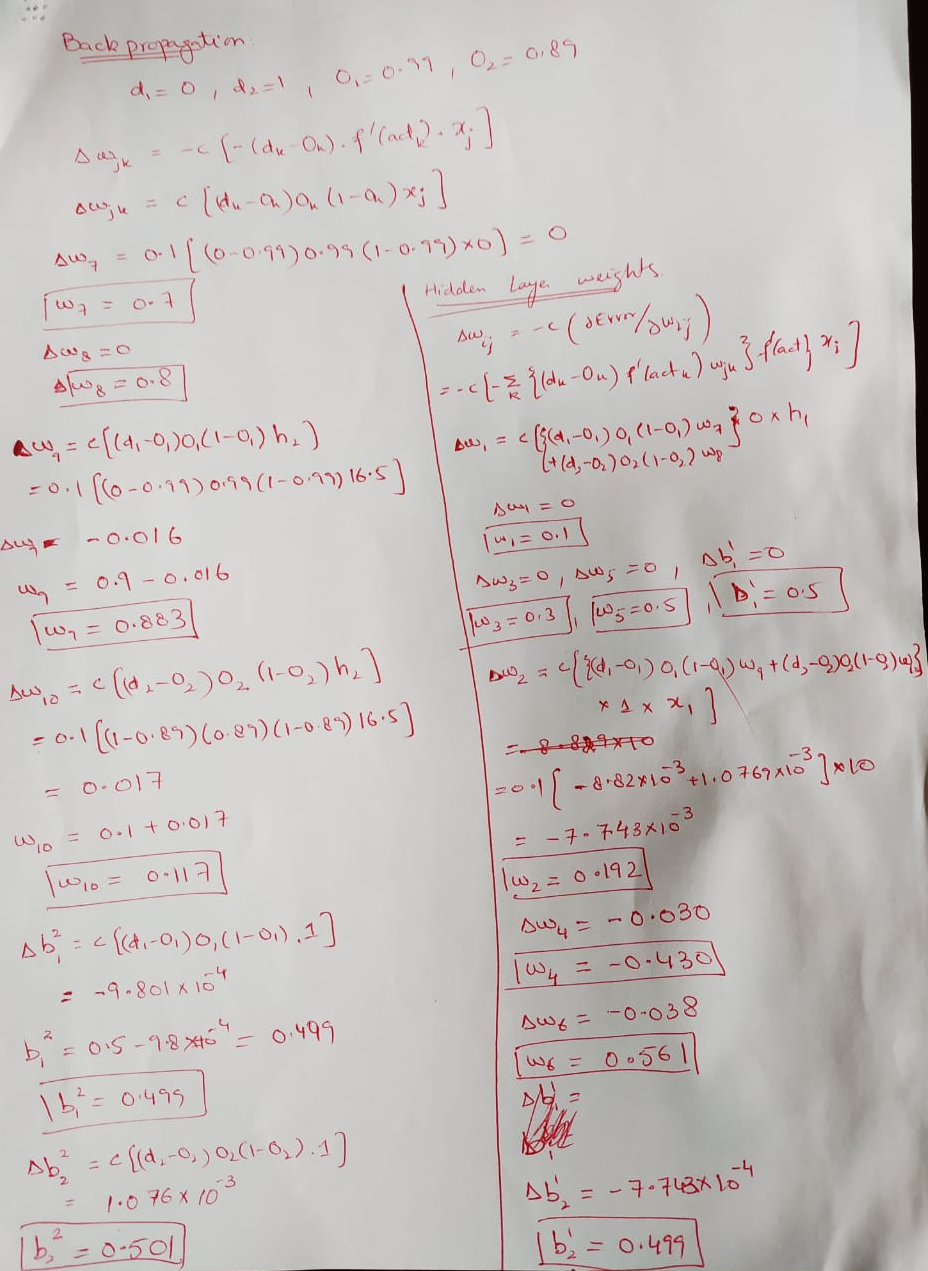 Back propagation:
d₁ = 0 , d₂ = 1 , O₁ = 0.99 , O₂ = 0.89
Δwⱼₖ = -c [-(dₖ-Oₖ). f'(actₖ). xⱼ]
Δwⱼₖ = c [(dₖ-Oₖ)Oₖ (1-Oₖ) xⱼ]
Δw₇ = 0.1 [(0-0.99)0.99 (1-0.99) x0] = 0
w₇ = 0.7
Δw₈ = 0
w₈ = 0.8
Δw₉ = c[(d₁-O₁)O₁(1-O₁) h₂]
= 0.1 [(0-0.99)0.99(1-0.99) 16.5]
Δw₉ = -0.016
w₉ = 0.9 - 0.016
w₉ = 0.883
Δw₁₀ = c [(d₂-O₂)O₂ (1-O₂) h₂]
= 0.1 [(1-0.89)(0.89)(1-0.89) 16.5]
= 0.017
w₁₀ = 0.1 + 0.017
w₁₀ = 0.117
Δb₁² = c [(d₁-O₁)O₁(1-O₁).1]
= -9.801 x 10⁻⁴
b₁² = 0.5 - 9.8 x10⁻⁴ = 0.499
b₁² = 0.499
Δb₂² = c [(d₂-O₂)O₂(1-O₂).1]
= 1.076 x 10⁻³
b₂² = 0.501
Hidden Laye weights
Δwᵢⱼ = -c (∂Error/∂wᵢⱼ)
= -c [-Σₖ {(dₖ-Oₖ) f'(actₖ) wⱼₖ} f'(actⱼ) xᵢ]
Δw₁ = c [{(d₁-O₁) O₁ (1-O₁) w₇ } 0 x h₁
+(d₂-O₂) O₂ (1-O₂) w₈
Δw₁ = 0
w₁ = 0.1
Δw₃ = 0 , Δw₅ = 0 , Δb₁¹ = 0
w₃ = 0.3 , w₅ = 0.5 , b₁¹ = 0.5
Δw₂ = c [{(d₁-O₁) O₁ (1-O₁) w₉ + (d₂-O₂)O₂(1-O₂)w₁₀}
x 1 x x₁]
= 0.1 [-8.82x10⁻³ + 1.0769x10⁻³] x10
= -7.743x10⁻³
w₂ = 0.192
Δw₄ = -0.030
w₄ = -0.430
Δw₆ = -0.038
w₆ = 0.561
Δb₁¹ =
Δb₂¹ = -7.743x10⁻⁴
b₂¹ = 0.499